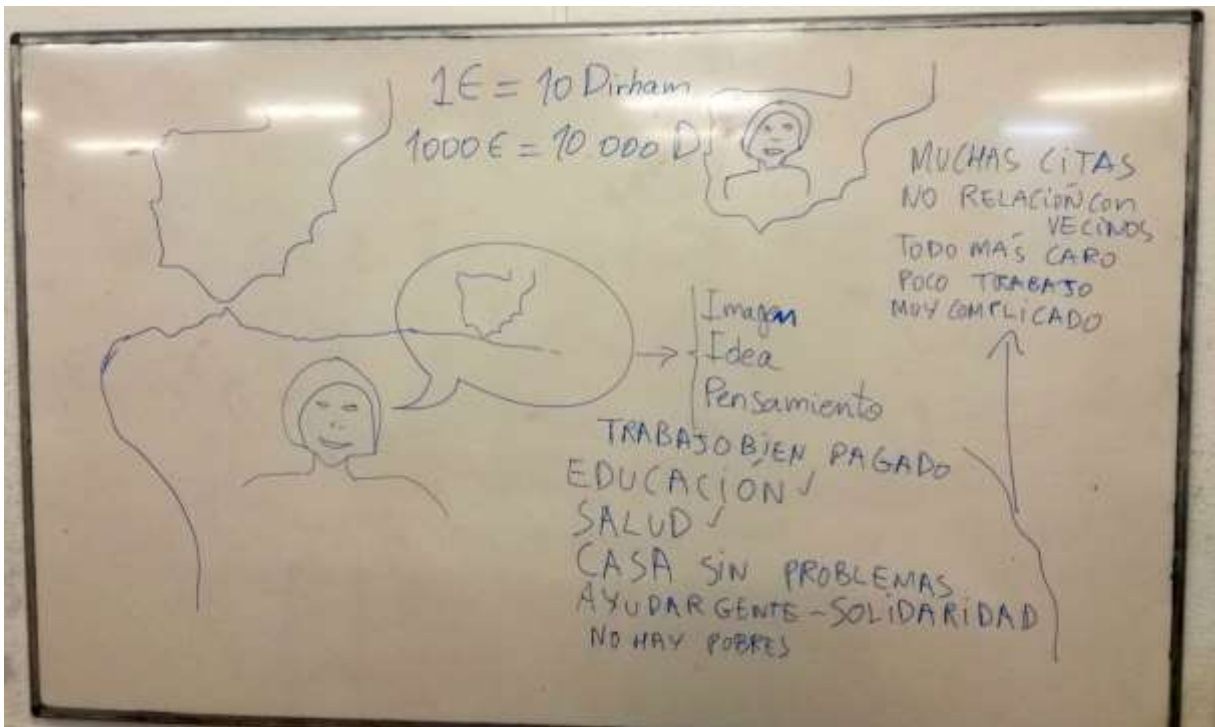 1€ = 10 Dirham
1000 € = 10.000 D
MUCHAS CITAS
NO RELACIÓN con
VECINOS
TODO MÁS CARO
POCO TRABAJO
MUY COMPLICADO
Imagen
Idea
Pensamiento
TRABAJO BIEN PAGADO
EDUCACIÓN ✓
SALUD ✓
CASA SIN PROBLEMAS
AYUDAR GENTE - SOLIDARIDAD
NO HAY POBRES